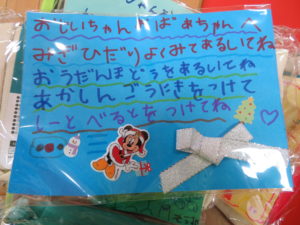 おじいちゃんおばあちゃんへ
みぎひだりよくみてあるいてね
おうだんほどうをあるいてね
あかしんごうにきをつけて
しーとべるとをつけてね